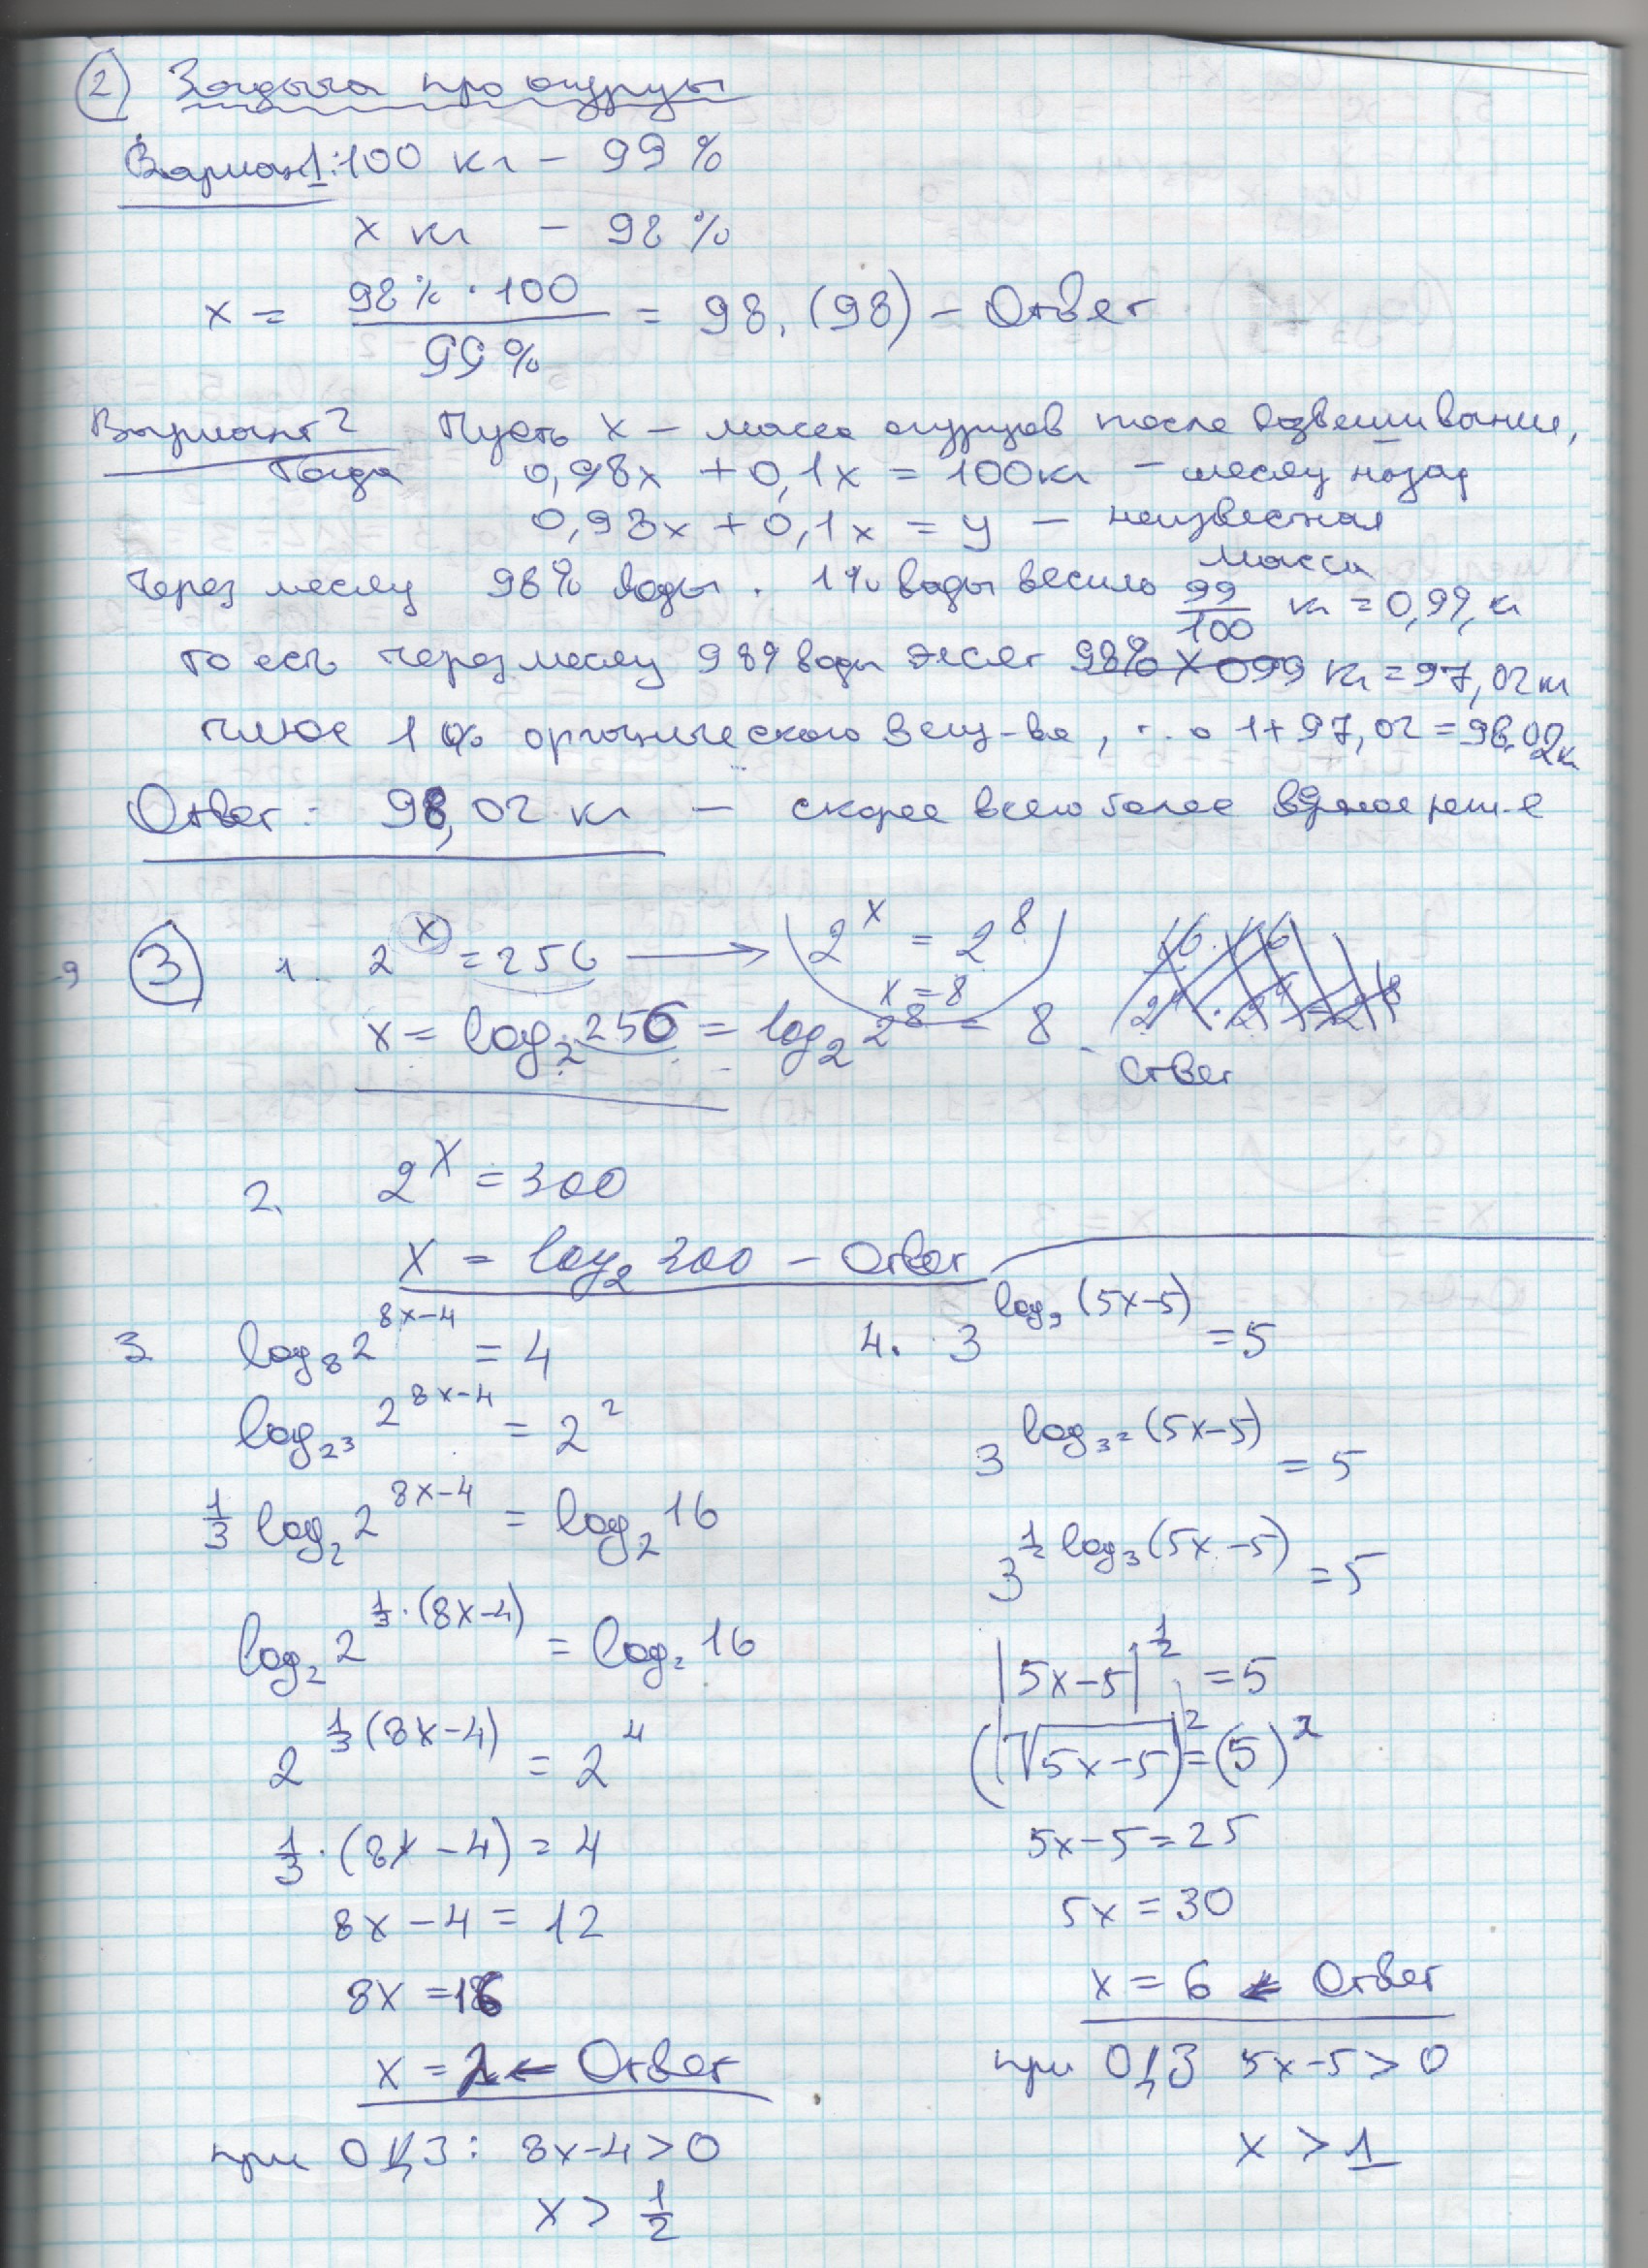 2 Задача про огурцы
Вариант 1: 100 кг – 99 %
x кг – 98 %
x = 98% · 100 / 99% = 98,(98) – Ответ
Вариант 2 Пусть x – масса огурцов после взвешивания,
Тогда 0,98x + 0,1x = 100кг – месяц назад
0,98x + 0,1x = y – неизвестная масса
Через месяц 98% воды. 1% воды весило 99/100 кг = 0,99 кг
то есть через месяц 98% воды весят 98% × 0,99 кг = 97,02 кг
плюс 1% органического вещ-ва, 1 + 97,02 = 98,02 кг
Ответ: 98,02 кг – скорее всего более верное реш-е
3 1. 2^x = 256 → 2^x = 2^8
x = 8
x = log₂ 256 = log₂ 2^8 = 8 – Ответ
2. 2^x = 300
x = log₂ 300 – Ответ
3. log₈ 2^(8x–4) = 4
log_(2^3) 2^(8x–4) = 2^2
1/3 log₂ 2^(8x–4) = log₂ 16
log₂ 2^(1/3 · (8x–4)) = log₂ 16
2^(1/3 (8x–4)) = 2^4
1/3 · (8x – 4) = 4
8x – 4 = 12
8x = 16
x = 2 ← Ответ
при ОДЗ: 8x–4 > 0
x > 1/2
4. 3^(log₉ (5x–5)) = 5
3^(log_(3^2) (5x–5)) = 5
3^(1/2 log₃ (5x–5)) = 5
|5x–5|^(1/2) = 5
(|√(5x–5)|)^2 = (5)^2
5x–5 = 25
5x = 30
x = 6 ← Ответ
при ОДЗ 5x–5 > 0
x > 1